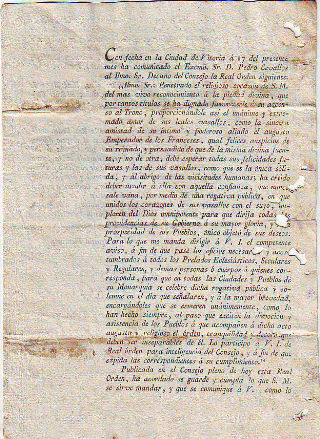 Con fecha en la Ciudad de Vitoria á 17 del presente
mes ha comunicado el Excmo. Sr. D. Pedro Cevallos
al Ilmo. Sr. Decano del Consejo la Real Orden siguiente:
Ilmo. Sr.: Penetrado el religioso corazon de S. M.
del mas vivo reconocimiento á la piedad divina, que
por tantos titulos se ha dignado su ascenso
al Trono, proporcionándole asi el unánime y
amor de sus leales vasallos, como la sincera
amistad de su íntimo y poderoso aliado el augusto
Emperador de los Franceses, qual felices auspicios de
su reynado, y persuadido de que de la misma divina
te, y no de otra, debe esperar todas sus felicidades
turas y las de sus vasallos, como que es la única
da, y al abrigo de las vicisitudes humanas, ha creido
deber acudir á ella con aquella confianza, que nunca
sale vana, por medio de una rogativa pública, en que
unidos los corazones de sus vasallos con el suyo,
ploren del Dios omnipotente para que dirija todas
providencias de su Gobierno á su mayor gloria, y
prosperidad de sus Pueblos, único objeto de sus deseos.
Para lo que me manda dirigir á V. I. el competente
aviso, á fin de que pase los oficios necesarios y
tumbrados á todos los Prelados Eclesiásticos, Seculares
y Regulares, y demas personas ó cuerpos á quienes
responda, para que en todas las Ciudades y Pueblos de
su Monarquía se celebre dicha rogativa pública y
lemne en el dia que señalaren, y á la mayor brevedad,
encargándoles que se esmeren unánimemente, como lo
han hecho siempre, al paso que exciten la devocion y
asistencia de los Pueblos á que acompañen á dicho acto
augusto y religioso el órden, tranquilidad y decoro que
deben ser inseparables de él. Lo participo á V. I. de
Real orden para inteligencia del Consejo, y á fin de que
expida las correspondientes á su cumplimiento.
Publicada en el Consejo pleno de hoy esta Real
Orden, ha acordado se guarde y cumpla lo que S. M.
se sirve mandar, y que se comunique á V. como lo